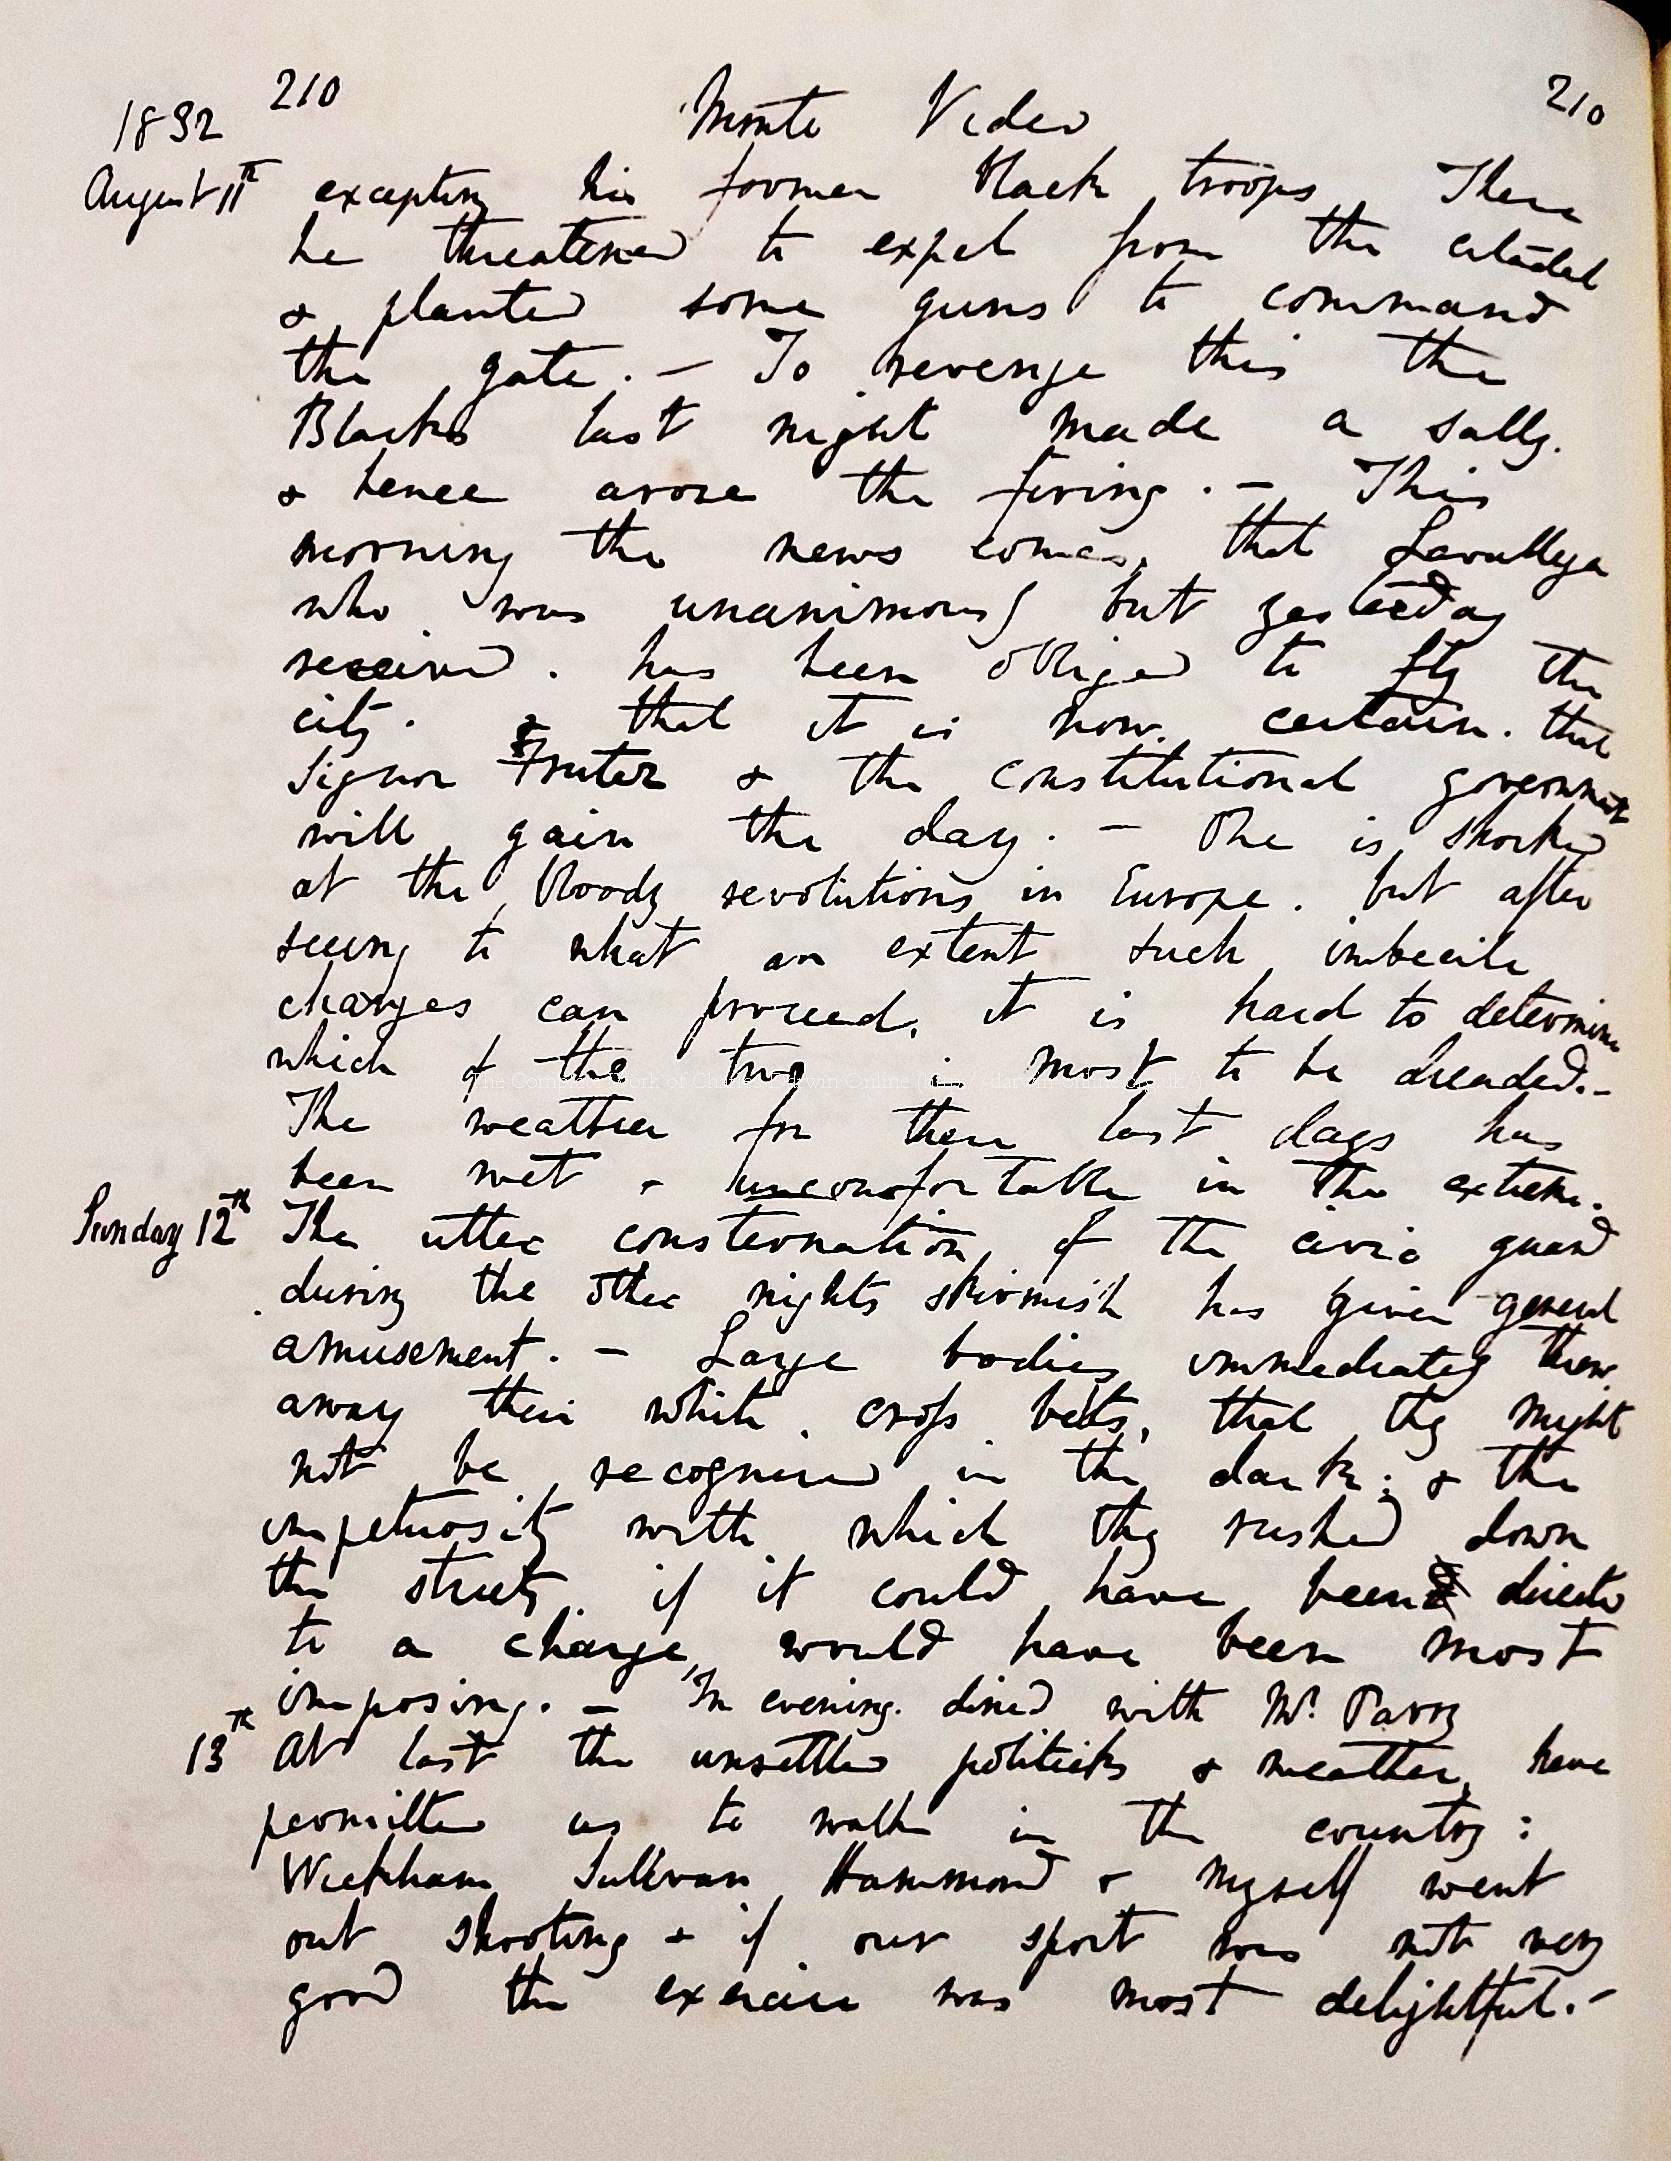 210 Monte Video 210
1832
August 11th excepting his former black troops These
he threatened to expel from the citadel
& planted some guns to command
the gate. — To revenge this the
Blacks last night made a sally.
& hence arose the firing. — This
morning the news comes, that Lavalleja
who was unanimously but yesterday
received. has been obliged to fly the
city. & that it is now certain. that
Signor Fruter & the constitutional government
will gain the day. — One is shocked
at the bloody revolutions in Europe. but after
seeing to what an extent such imbecile
changes can proceed, it is hard to determine
which of the two is most to be dreaded. —
The weather for these last days has
been wet & uncomfortable in the extreme.
Sunday 12th The utter consternation, of the civic guard
during the other nights skirmish has given general
amusement. — Large bodies immediately threw
away their white cross belts, that they might
not be recognised in the dark; & the
impetuosity with which they rushed down
the streets, if it could have been directed
to a charge, would have been most
imposing. — In evening. dined with Mr. Parry
13th At last the unsettled politicks & weather, have
permitted us to walk in the country:
Wickham Sullivan Hammond & myself went
out shooting & if our sport was not very
good the exercise was most delightful. —